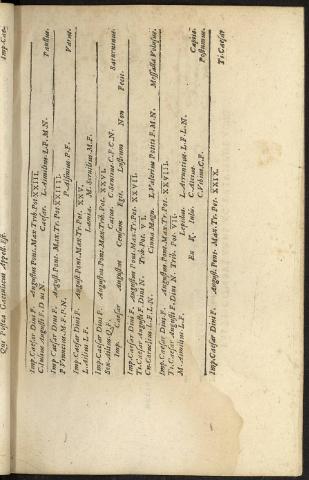 Qui Postea Germanicus Appell. Est. Imp. Cæs.
Imp. Cæsar Diui F. Augustus Pont. Max. Trib. Pot. XXIII.
C. Iulius August. F. D iui N. Cæsar. L. Aimilius. L. F. M. N. Paullus.
Imp. Cæsar Diui F. August. Pont. Max. Tr. Pot. XXIIII.
P. Vinicius. M. F. P. N. P. Alfenius P. F. Varus.
Imp. Cæsar Diui F. August. Pont. Max. Tr. Pot. XXV.
L. Ailius L. F. Lamia. M. Seruilius M. F.
Imp. Cæsar Diui F. August. Pont. Max. Trib. Pot. XXVI.
Sex. Ailius Q. F. Catus. C. Sentius C. F. C. N. Saturninus.
Imp. Cæsar Augustus Censum Egit. Lustrum Non Fecit.
Imp. Cæsar Diui F. Augustus Pont. Max. Tr. Pot. XXVII.
Ti. Cæsar Augusti F. Diui N. Trib. Pot. VI.
Cn. Cornelius L. F. L. N. Cinna Magn. L. Valerius Potiti F. M. N. Messalla Volesus.
Imp. Cæsar Diui F. Augustus Pont. Max. Tr. Pot. XXVIII.
Ti. Cæsar Augusti F. Diui N. Trib. Pot. VII.
M. Aimilius L. F. Lepidus. L. Arruntius. L. F. L. N.
Ex K. Iulis. C. Ateius Capito.
C. Vibius C. F. Postumus.
Imp. Cæsar Diui F. August. Pont. Max. Tr. Pot. XXIX.
Ti. Cæsar